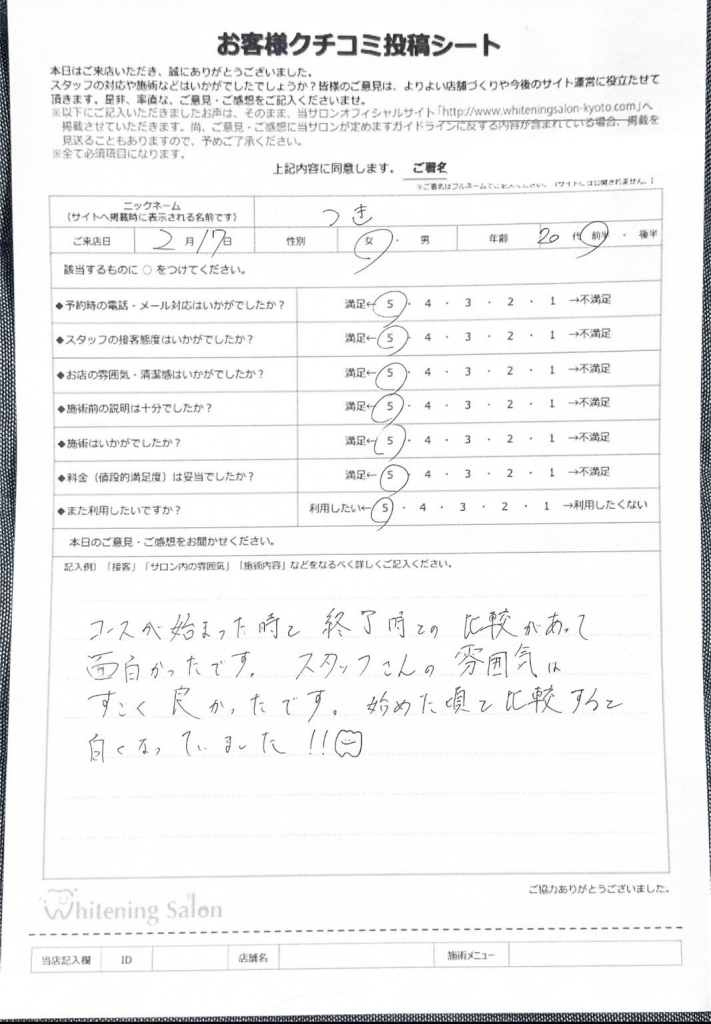 お客様クチコミ投稿シート
本日はご来店いただき、誠にありがとうございました。
スタッフの対応や施術などはいかがでしたでしょうか？皆様のご意見は、よりよい店舗づくりや今後のサイト運営に役立たせて
頂きます。是非、率直な、ご意見・ご感想をご記入くださいませ。
※以下にご記入いただきましたお声は、そのまま、当サロンオフィシャルサイト「http://www.whiteningsalon-kyoto.com」へ
掲載させていただきます。尚、ご意見・ご感想に当サロンが定めますガイドラインに反する内容が含まれている場合、掲載を
見送ることもありますので、予めご了承ください。
※全て必須項目になります。
上記内容に同意します。 ご署名
※ご署名はフルネームでご記入ください。（サイトには公開されません。）
ニックネーム
（サイトへ掲載時に表示される名前です） つき
ご来店日 2月17日 性別 女・男 年齢 20代 前半・後半
該当するものに ○ をつけてください。
◆予約時の電話・メール対応はいかがでしたか？ 満足←5・4・3・2・1→不満足
◆スタッフの接客態度はいかがでしたか？ 満足←5・4・3・2・1→不満足
◆お店の雰囲気・清潔感はいかがでしたか？ 満足←5・4・3・2・1→不満足
◆施術前の説明は十分でしたか？ 満足←5・4・3・2・1→不満足
◆施術はいかがでしたか？ 満足←5・4・3・2・1→不満足
◆料金（値段的満足度）は妥当でしたか？ 満足←5・4・3・2・1→不満足
◆また利用したいですか？ 利用したい←5・4・3・2・1→利用したくない
本日のご意見・ご感想をお聞かせください。
記入例）「接客」「サロン内の雰囲気」「施術内容」などをなるべく詳しくご記入ください。
コースが始まった時と終了時との比較があって
面白かったです。スタッフさんの雰囲気は
すごく良かったです。始めた頃と比較すると
白くなっていました!!
ご協力ありがとうございました。
Whitening Salon
当店記入欄 ID 店舗名 施術メニュー